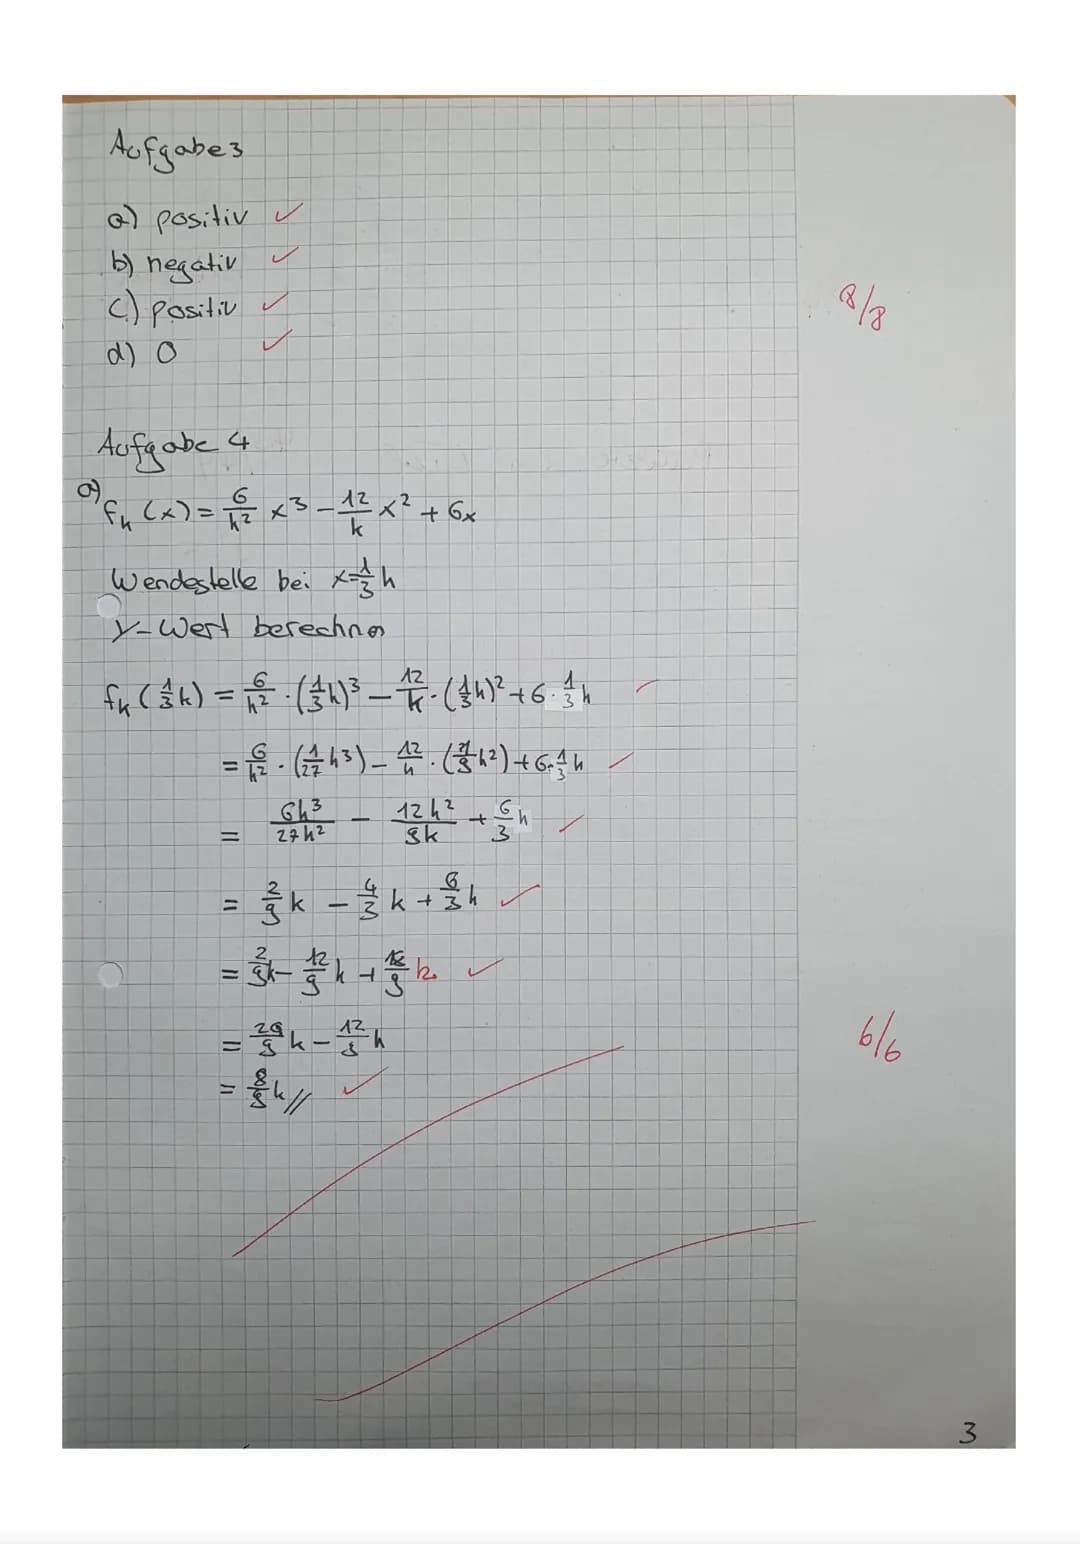 Aufgabe 3
a) positiv ✓
b) negativ ✓
c) positiv ✓
d) 0 ✓
8/8
Aufgabe 4
a)
fk (x) = 6/k² x³ - 12/k x² + 6x
Wendestelle bei x=1/3 k
y-Wert berechnen
fk (1/3 k) = 6/k² · (1/3 k)³ - 12/k · (1/3 k)² + 6 · 1/3 k
= 6/k² · (1/27 k³) - 12/k · (1/9 k²) + 6 · 1/3 k ✓
= 6k³/27k² - 12k²/9k + 6/3 k ✓
= 2/9 k - 4/3 k + 6/3 k ✓
= 2/9 k - 12/9 k + 18/9 k. ✓
= 20/9 k - 12/9 k
6/6
= 8/9 k // ✓
3